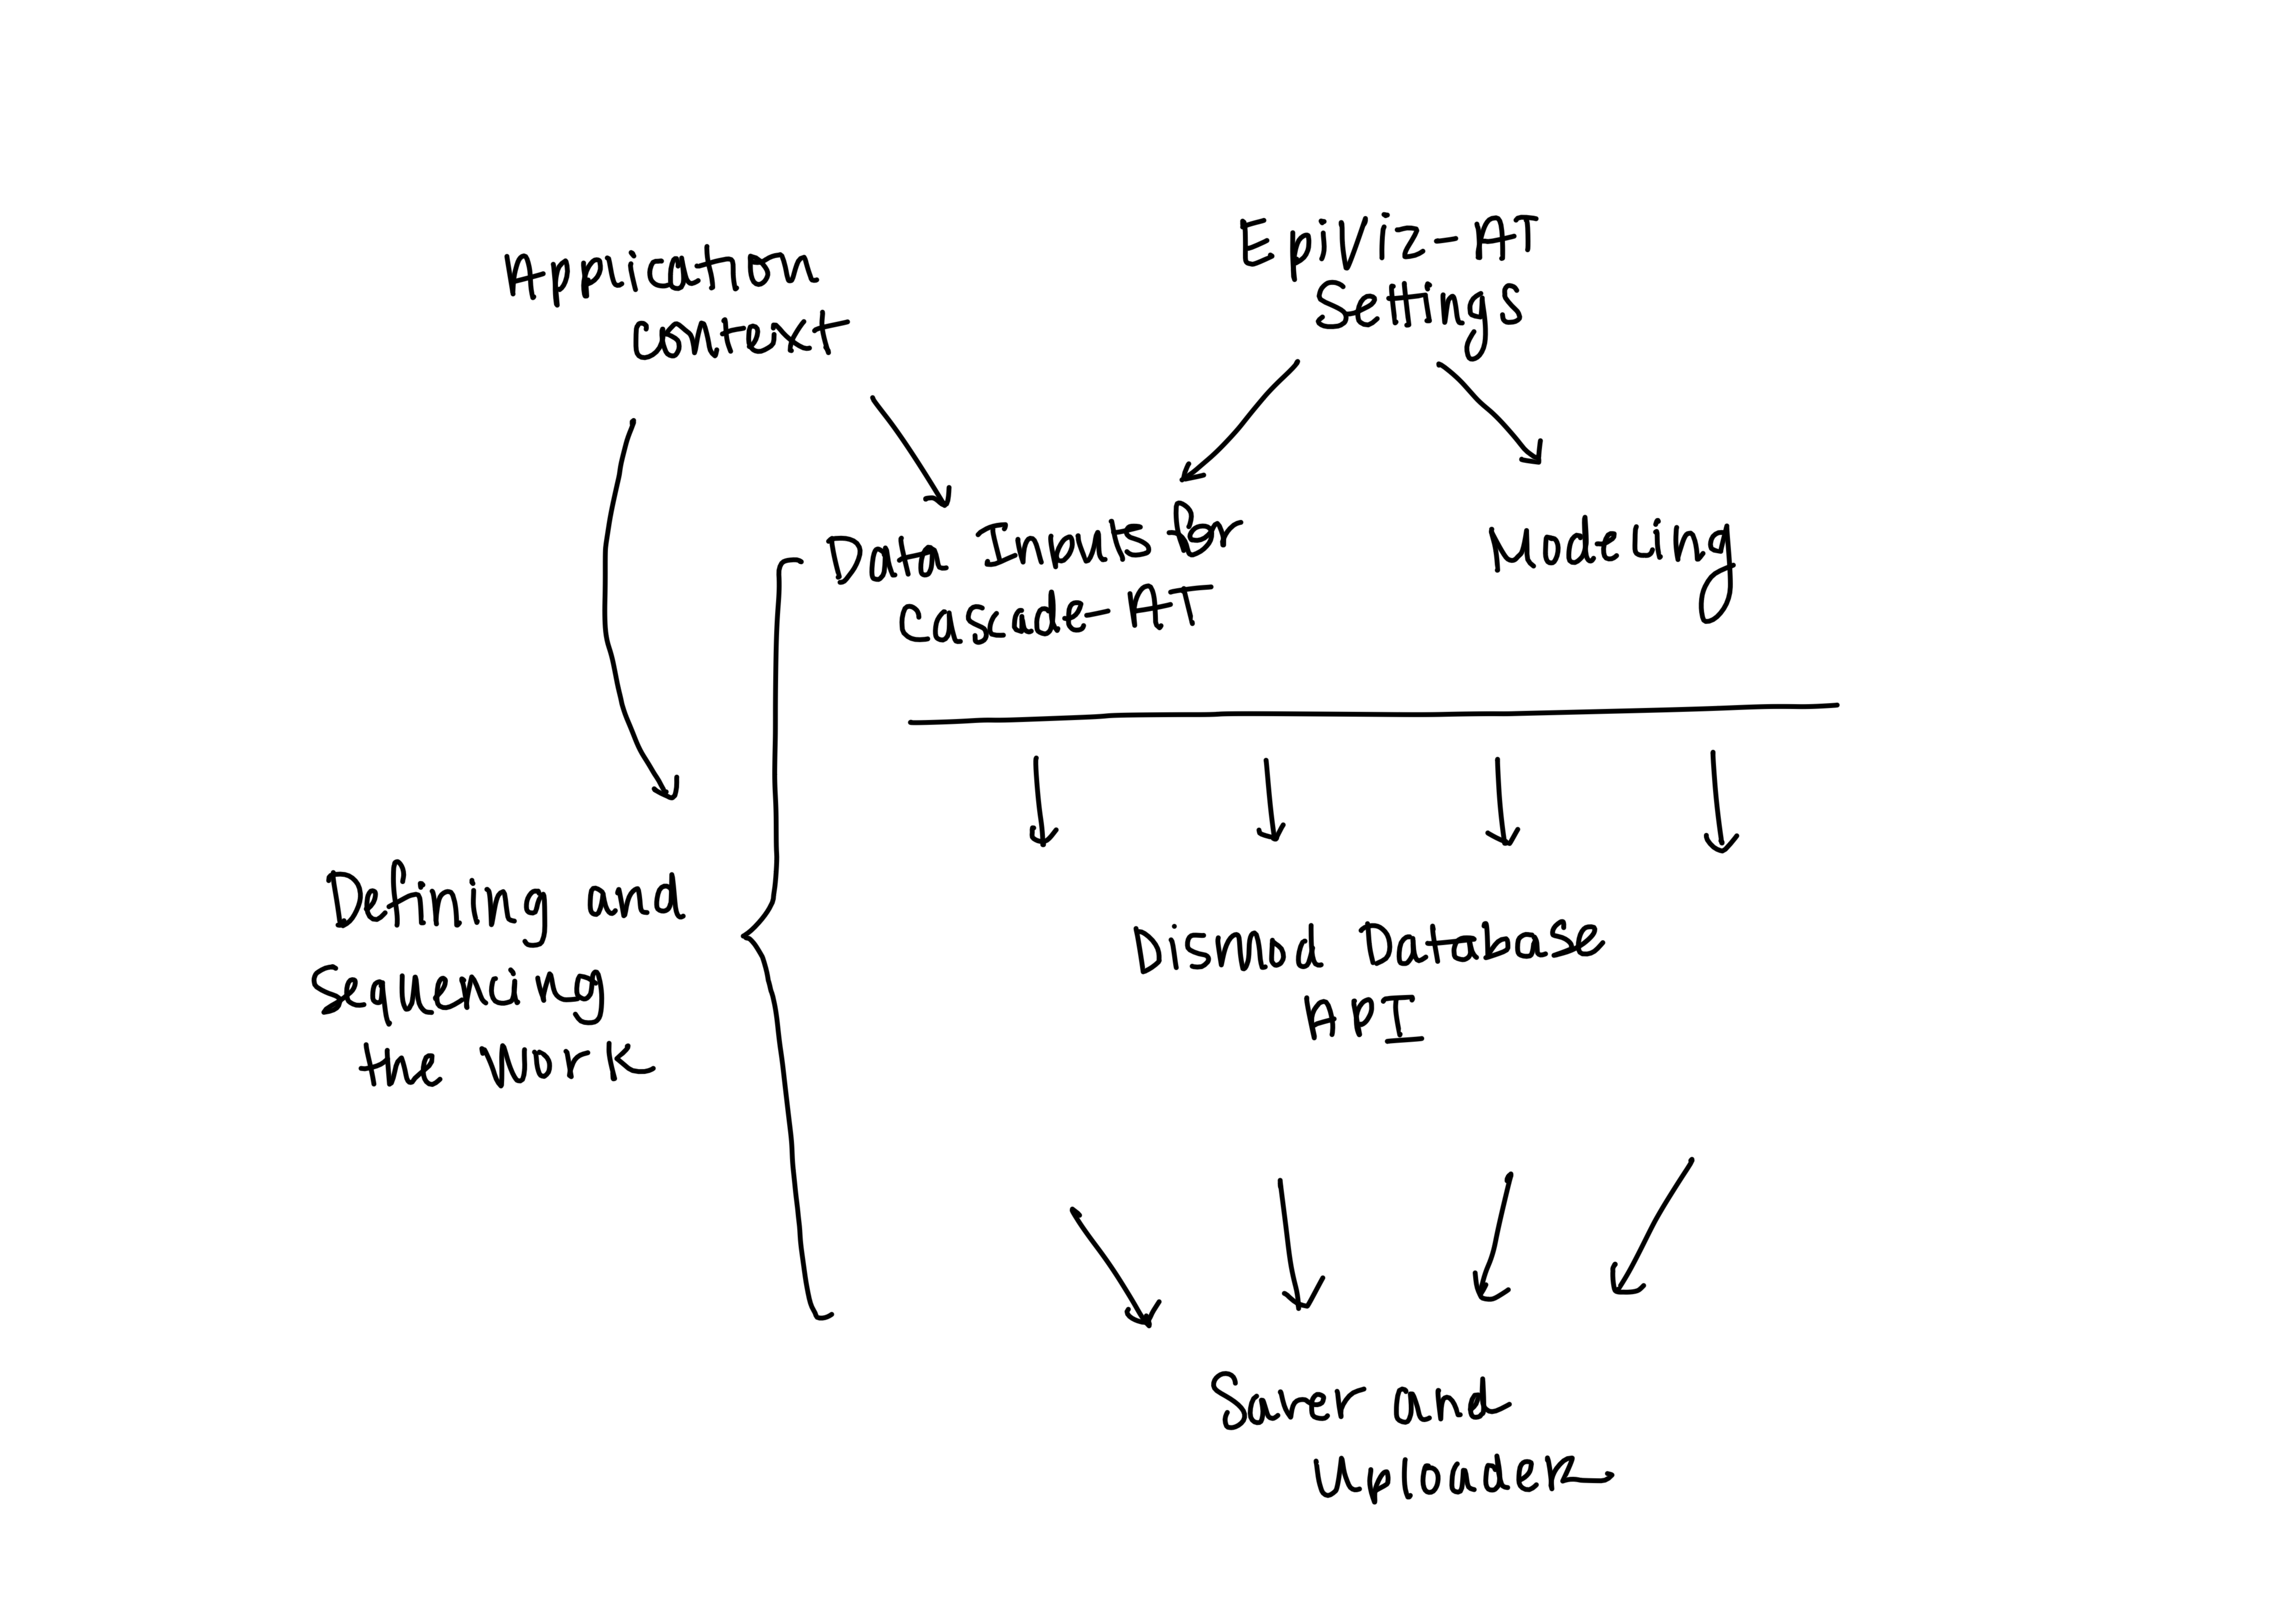 Application
context
EpiViz-AT
Settings
Data Inputs for
Cascade-AT
Modeling
Defining and
Sequencing
the Work
Dismod Database
API
Saver and
Uploader